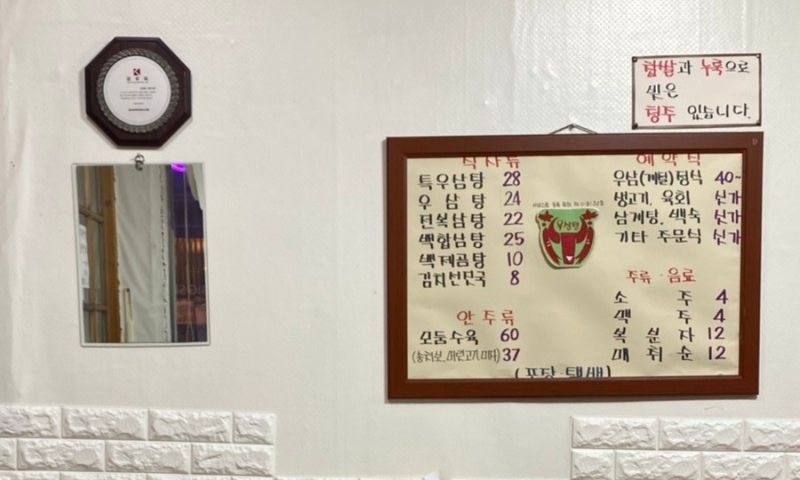 찹쌀과 누룩으로
빚은
청주 있습니다.
식사류
특우삼탕 28
우삼탕 24
전복삼탕 22
백합삼탕 25
백제곰탕 10
김치선민국 8
안주류
모둠수육 60
37
예약식
우삼(계란)정식 40~
생고기, 육회 싯가
삼계탕, 백숙 싯가
기타 주문식 싯가
주류·음료
소주 4
맥주 4
복분자 12
매취순 12
(포장·택배)